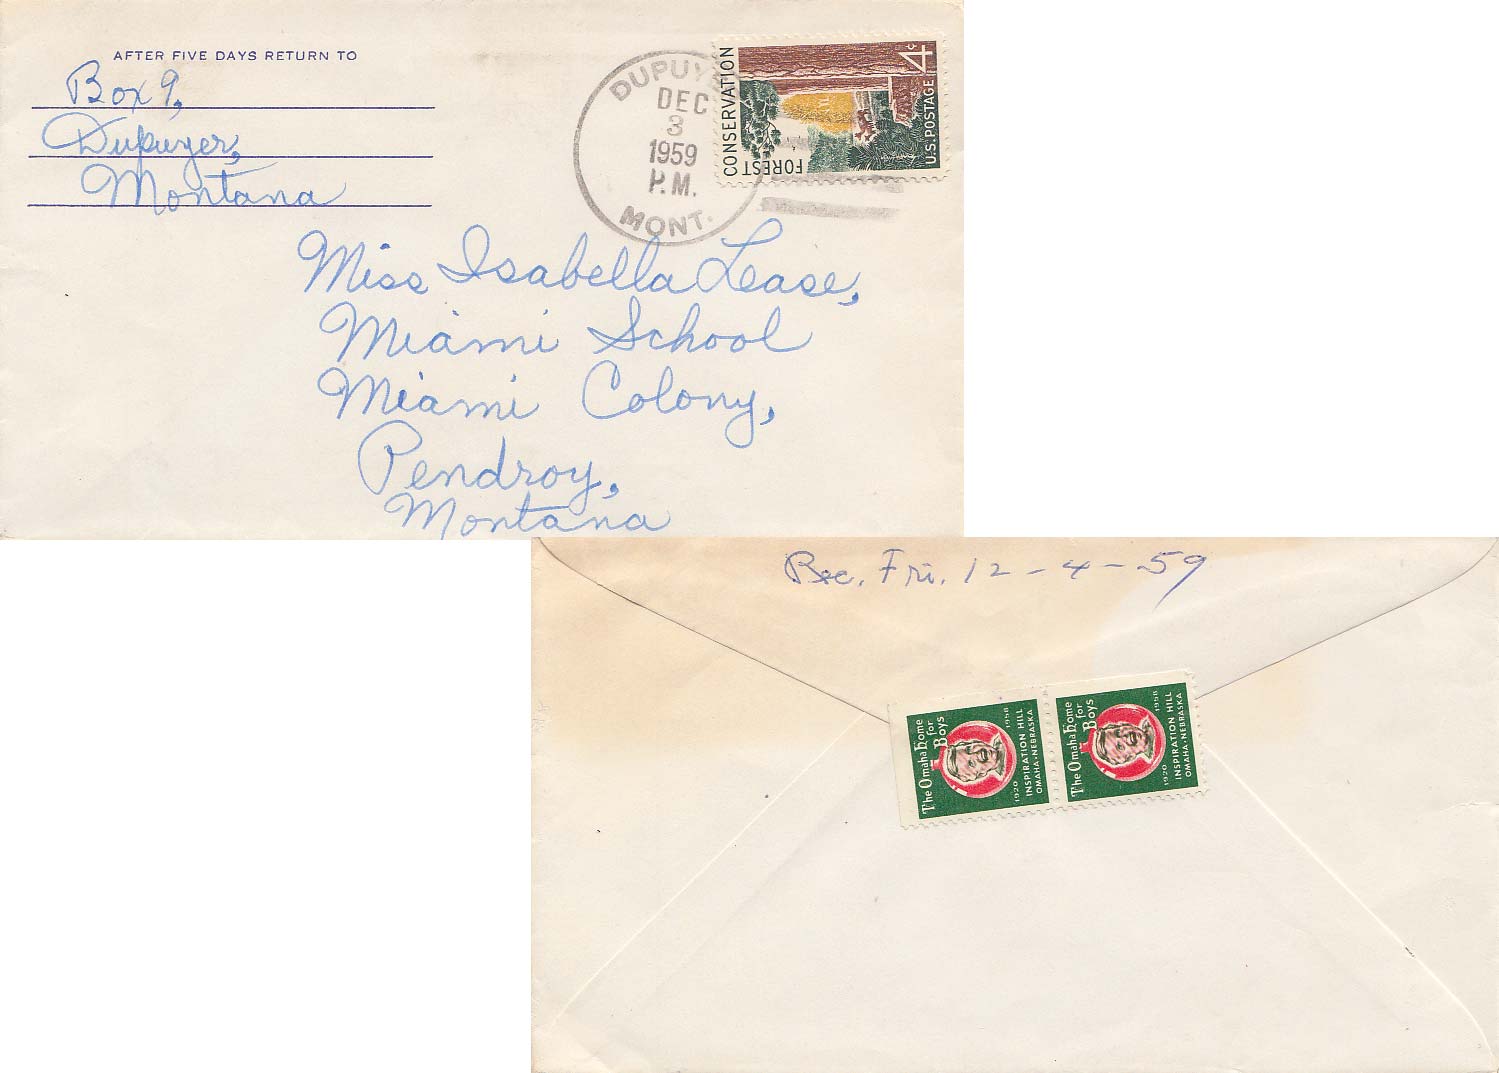 AFTER FIVE DAYS RETURN TO
Box 9,
Dupuyer,
Montana
DUPUYER
DEC
3
1959
P.M.
MONT.
FOREST CONSERVATION
4¢
U.S. POSTAGE
Miss Isabella Lease,
Miami School
Miami Colony,
Pendroy,
Montana
Rec. Fri. 12-4-59
The Omaha Home
for
Boys
1920 1958
INSPIRATION HILL
OMAHA·NEBRASKA
The Omaha Home
for
Boys
1920 1958
INSPIRATION HILL
OMAHA·NEBRASKA